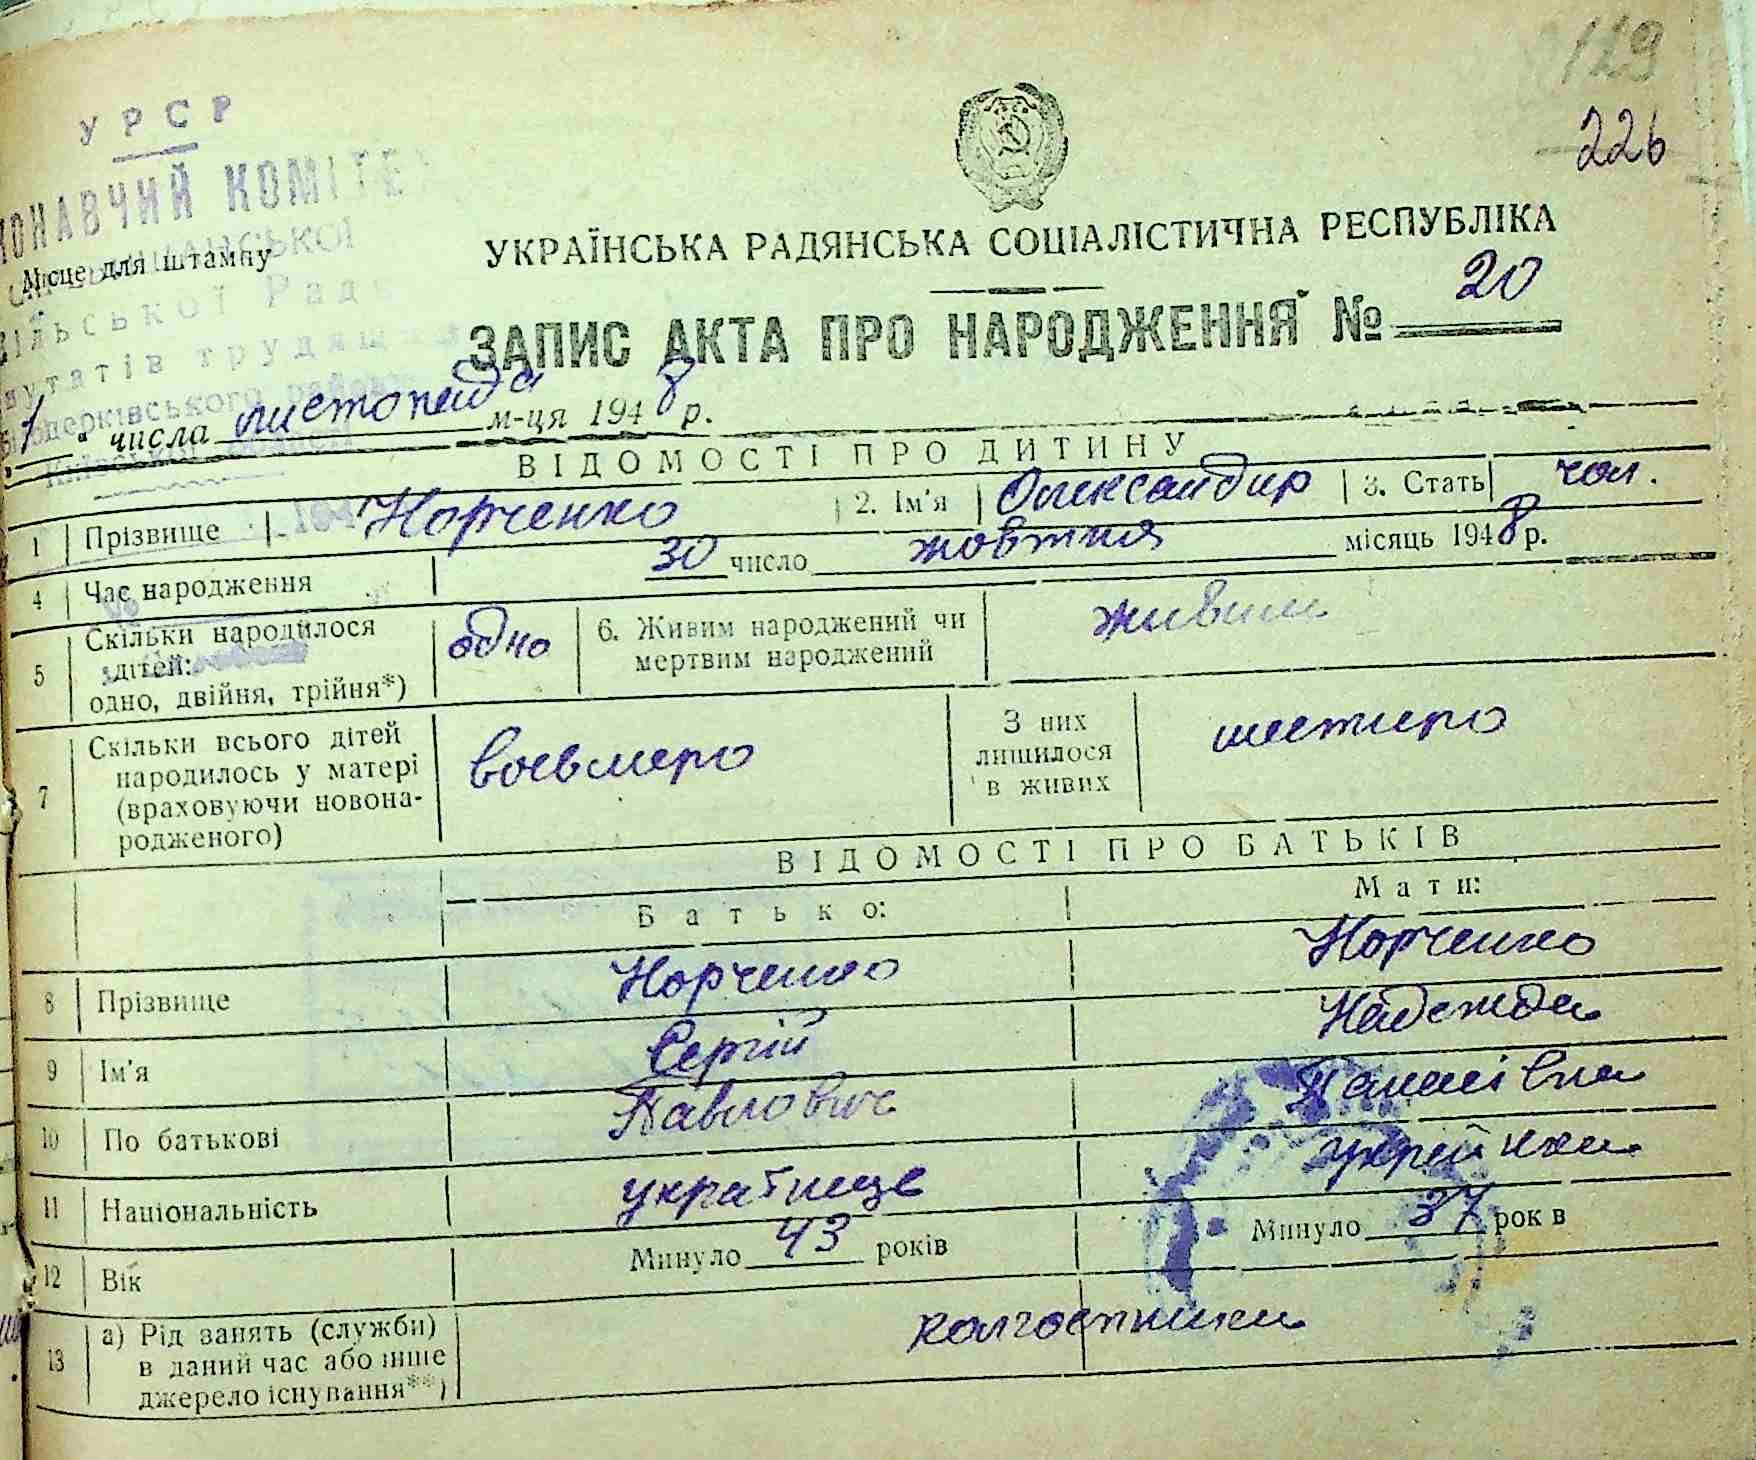 129
226
УРСР
КОНАВЧИЙ КОМІТЕ
Місце для штампу
сільської Рад
путатів трудящ
церківського район
УКРАЇНСЬКА РАДЯНСЬКА СОЦІАЛІСТИЧНА РЕСПУБЛІКА
ЗАПИС АКТА ПРО НАРОДЖЕННЯ № 20
1 числа листопада м-ця 1948 р.
ВІДОМОСТІ ПРО ДИТИНУ
1 Прізвище Норченко 2. Ім'я Олександир 3. Стать чол.
4 Час народження 30 число жовтня місяць 1948 р.
5 Скільки народилося дітей: одно, двійня, трійня*) одно 6. Живим народжений чи мертвим народжений живим
7 Скільки всього дітей народилось у матері (враховуючи новонародженого) восьмеро З них лишилося в живих шестиро
ВІДОМОСТІ ПРО БАТЬКІВ
Батько: Мати:
8 Прізвище Норченко Норченко
9 Ім'я Сергій Надежда
10 По батькові Павлович Панасівна
11 Національність українце украйнка
12 Вік Минуло 43 років Минуло 37 рок в
13 а) Рід занять (служби) в даний час або інше джерело існування**) колгоспники